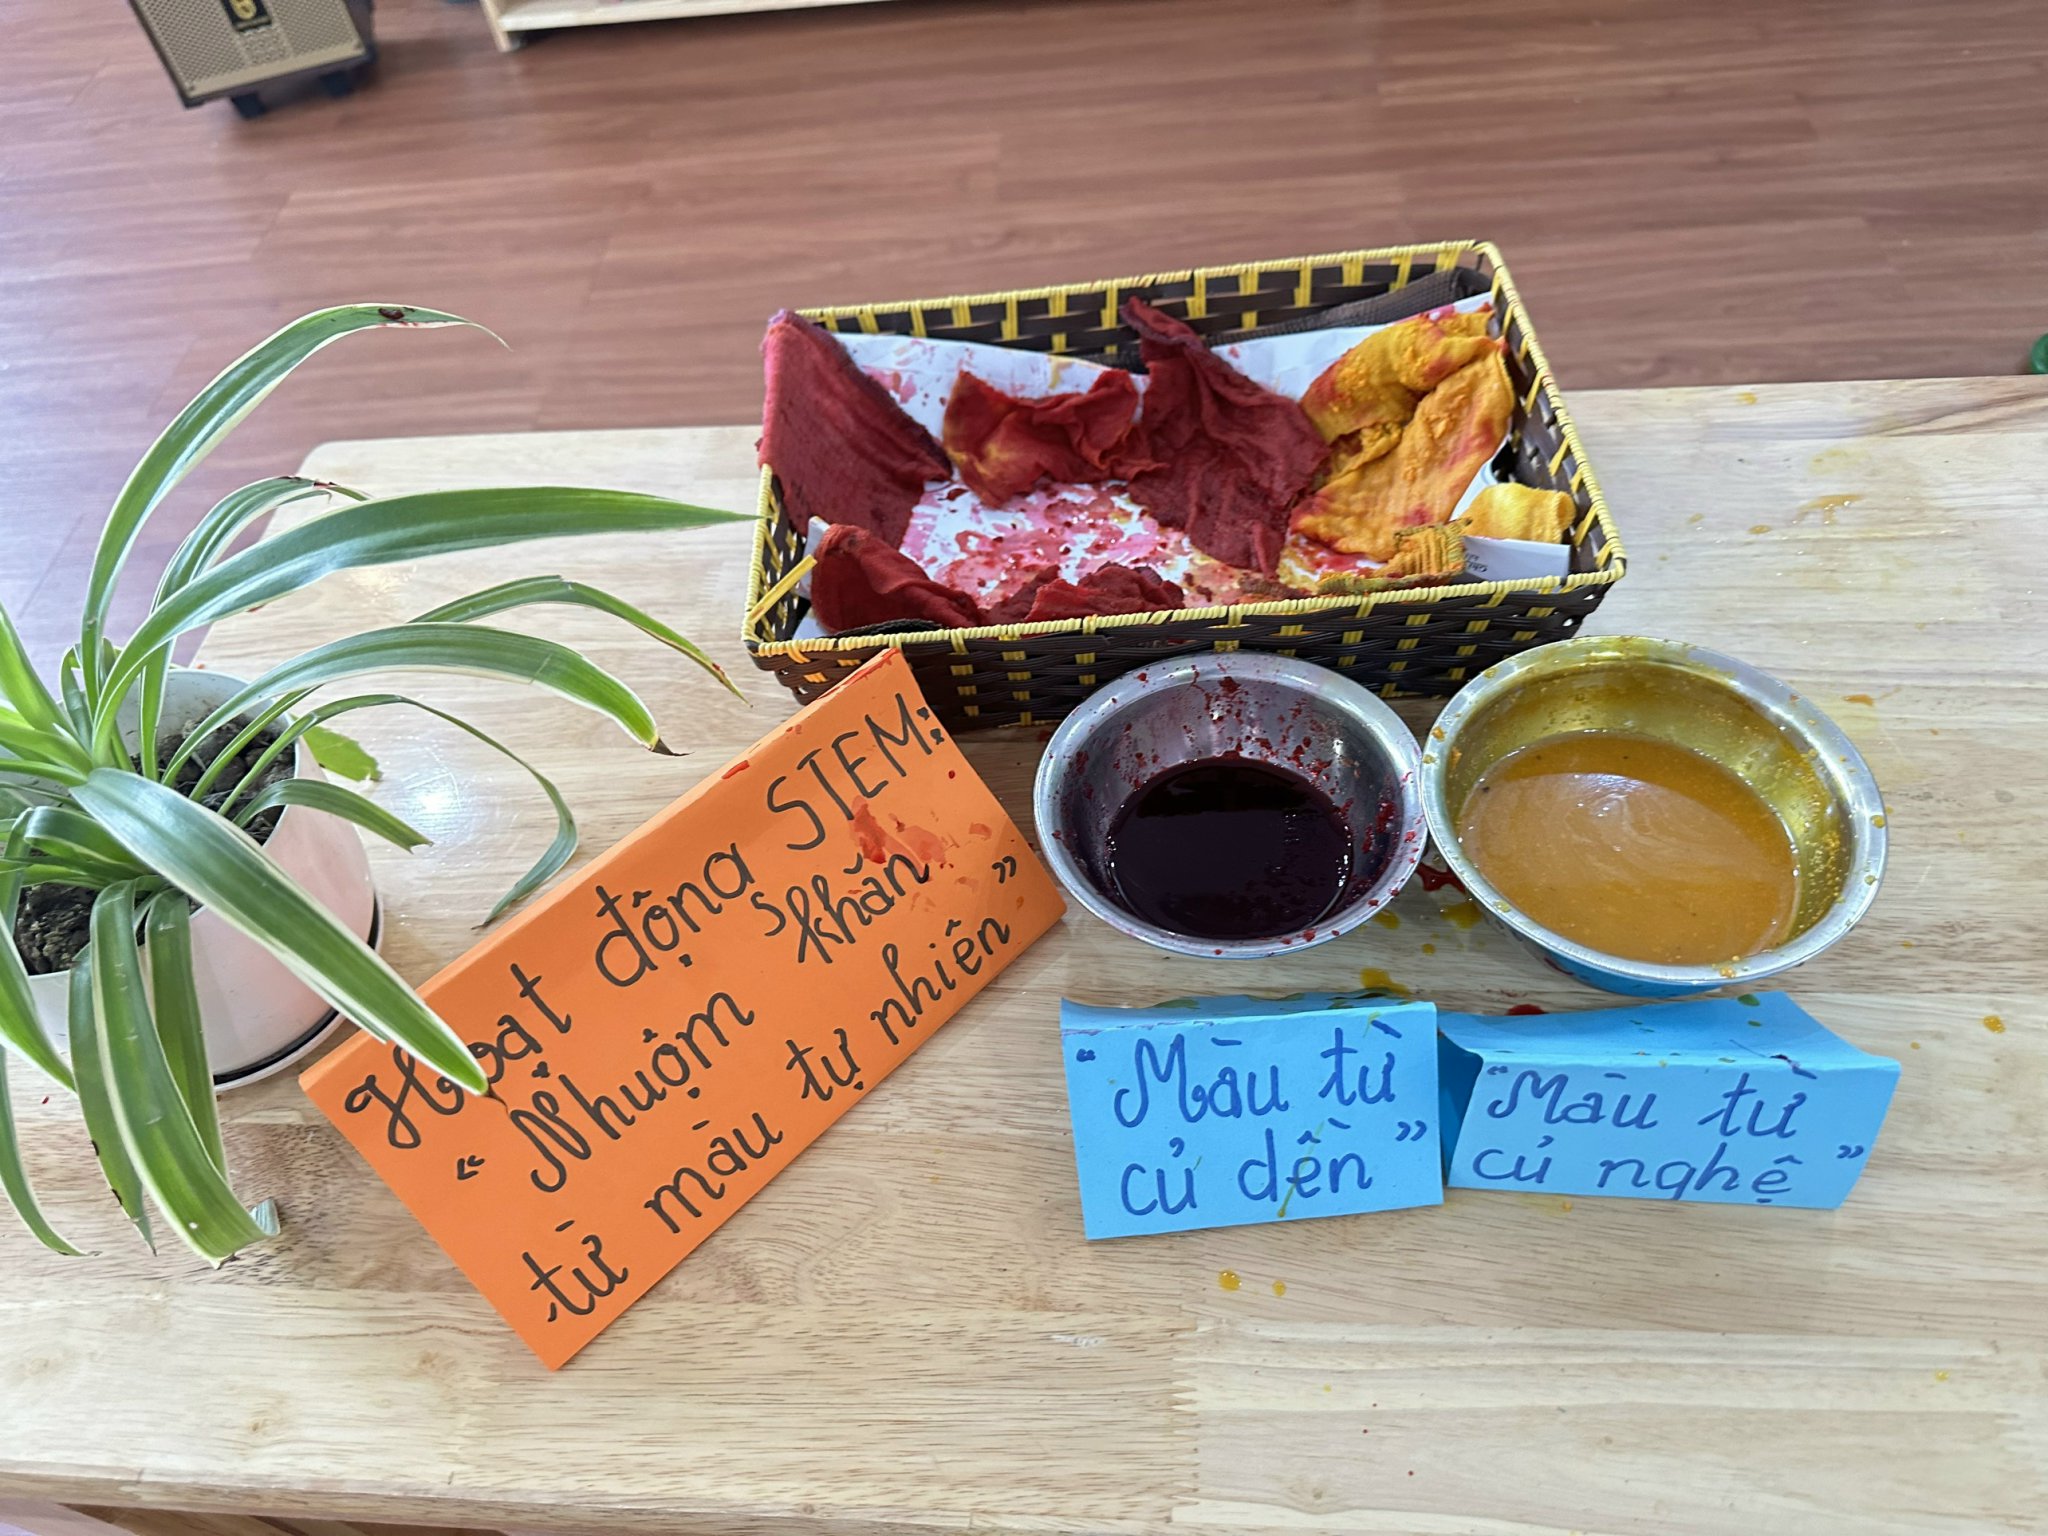 Hoạt động STEM:
"Nhuộm khăn
từ màu tự nhiên"
"Màu từ
củ dền"
"Màu từ
củ nghệ"